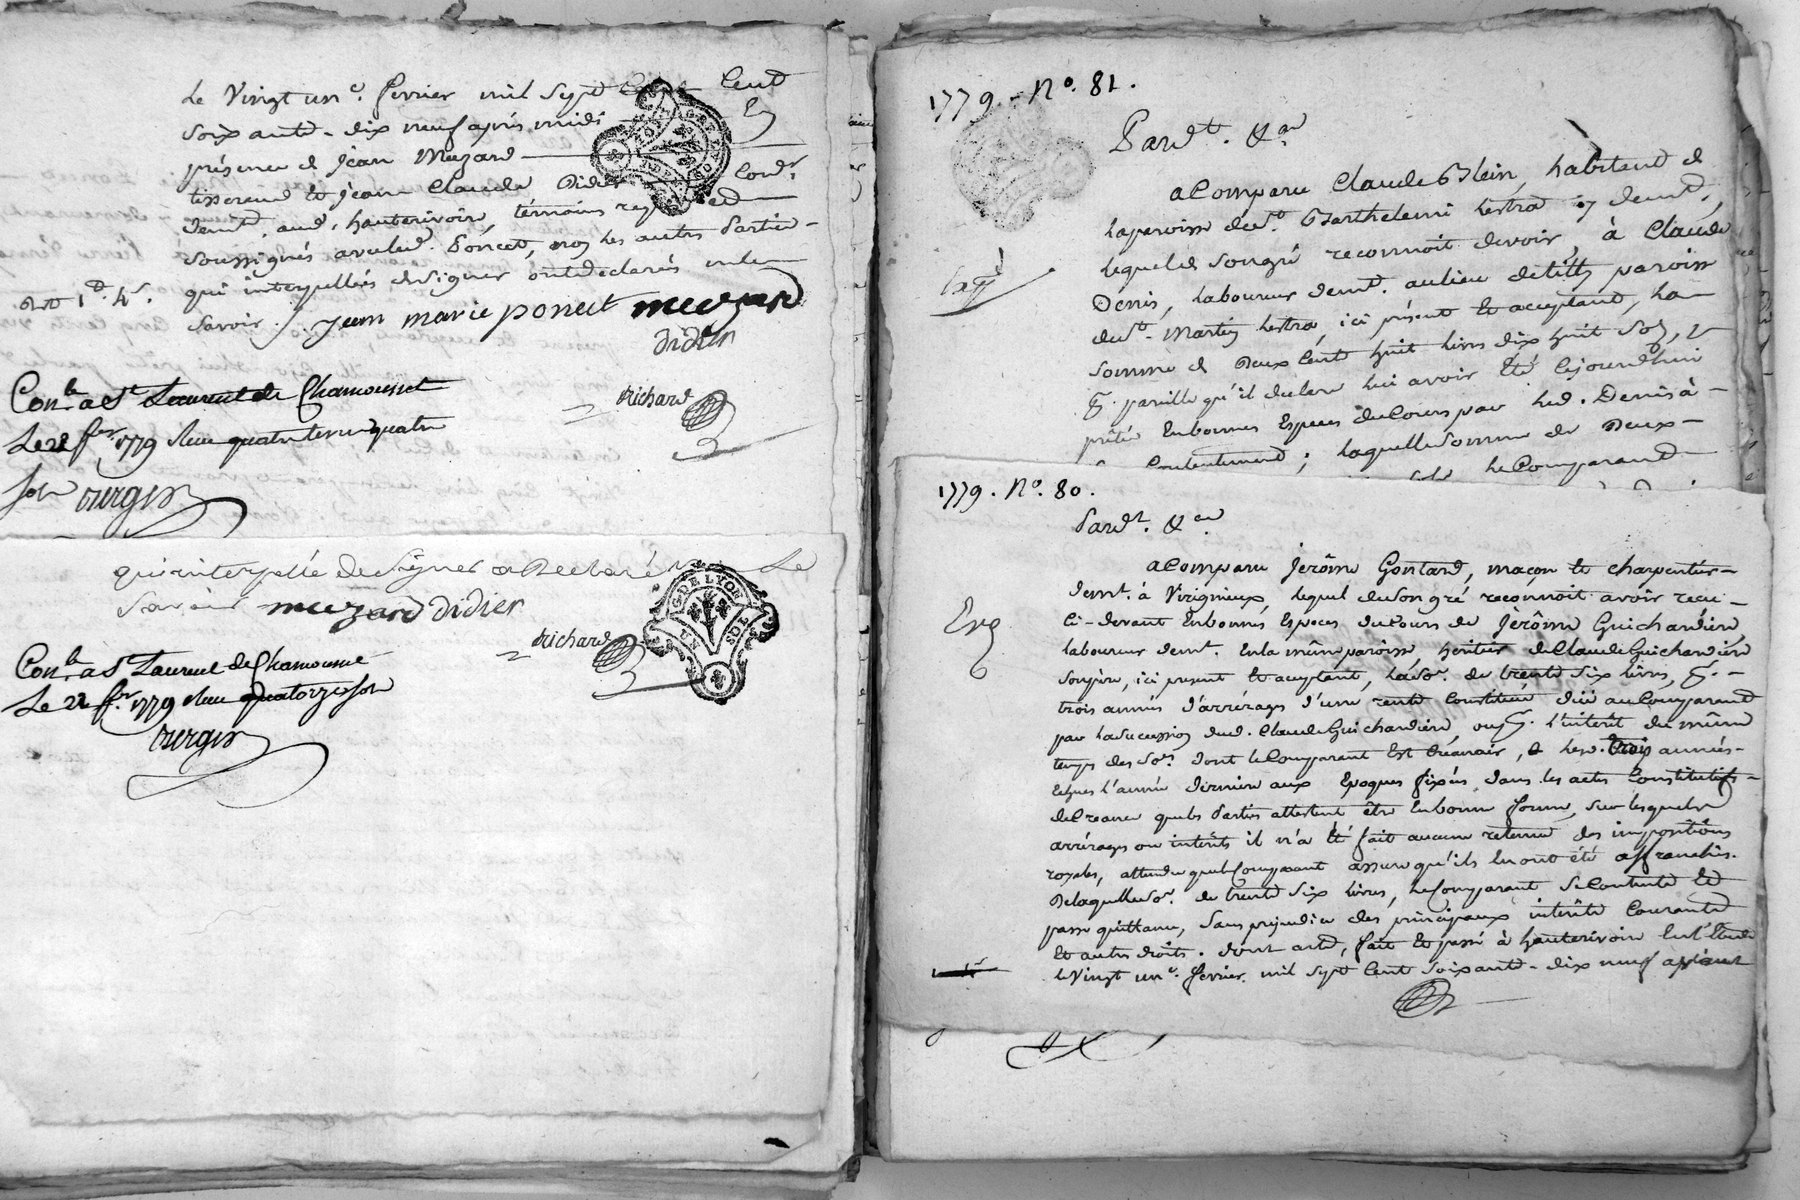 Le Vingt un e. fevrier mil Sept Cent
Soixante-dix neuf après midi
présence de Jean Muzard
tisserand et Jean Claude Didier Cord.r
demt. aud. hauterivoire, témoins requis
soussignés avec led. Poncet, non les autres Parties
qui interpellées de signer ont déclarés ne le
savoir ./. Jean marie poncet muzard
didier
Richard
Con.le a St. Laurent de Chamousset
Le 22 fer. 1779 Reçu quatre livres quatre
sols Vergier
qui interpellé de Signer a Declaré Le
Savoir muzard didier
G. DE LYON
UN SDE
Richard
Con.le a St. Laurent de Chamousset
Le 22 fr. 1779 Reçu quatorze sols
Vergier
1779. - No. 81.
Pardt. &a.
a Comparu Claude Blein, habitant de
la paroisse de St. Barthelemi Lestra y demt.,
lequel de son gré reconnoit devoir, à Claude
Denis, laboureur demt. au lieu de paroisse
de St. Martin Lestra, ici présent et acceptant, la
somme de Deux Cent huit livres dix huit sols,
pr. pareille qu'il declare lui avoir été cejourd'hui
prêtée En bonnes Especes du Cours par led. Denis à
Contentement; laquelle somme de Deux-
le Comparant
1779. No. 80.
Pardt. &a.
a Comparu Jerôme Gontard, maçon et charpentier
demt. à Virignieux, lequel de son gré reconnoit avoir recu
Ci-devant En bonnes Especes du Cours de Jerôme Guichardien,
Exp
laboureur demt. En la même paroisse heritier de Claude Guichardien
son père, ici present et acceptant, la So.e de trente Six livres, pr.
trois années d'arrérages d'une rente Constituée düe au Comparant
par la Succession dud. Claude Guichardien, ou pr. l'interêt du même
temps des So.es dont le Comparant Est Créancier, & lesd. trois années
Echues l'année derniere aux Epoques fixées dans les actes Constitutifs
de Creance que les Parties attestent être En bonne forme, sur lesquels
arrérages ou interêts il n'a été fait aucune retenue des impositions
royales, attendu que le Comparant assure qu'ils En ont été affranchis.
De laquelle So.e de trente Six livres, le Comparant Se Contente Et
passe quittance, Sans prejudice des principaux interêts Courants
Et autres droits. dont acte, fait Et passé à hauterivoire En l'Etude
le Vingt un e. fevrier mil Sept Cent Soixante-dix neuf avant